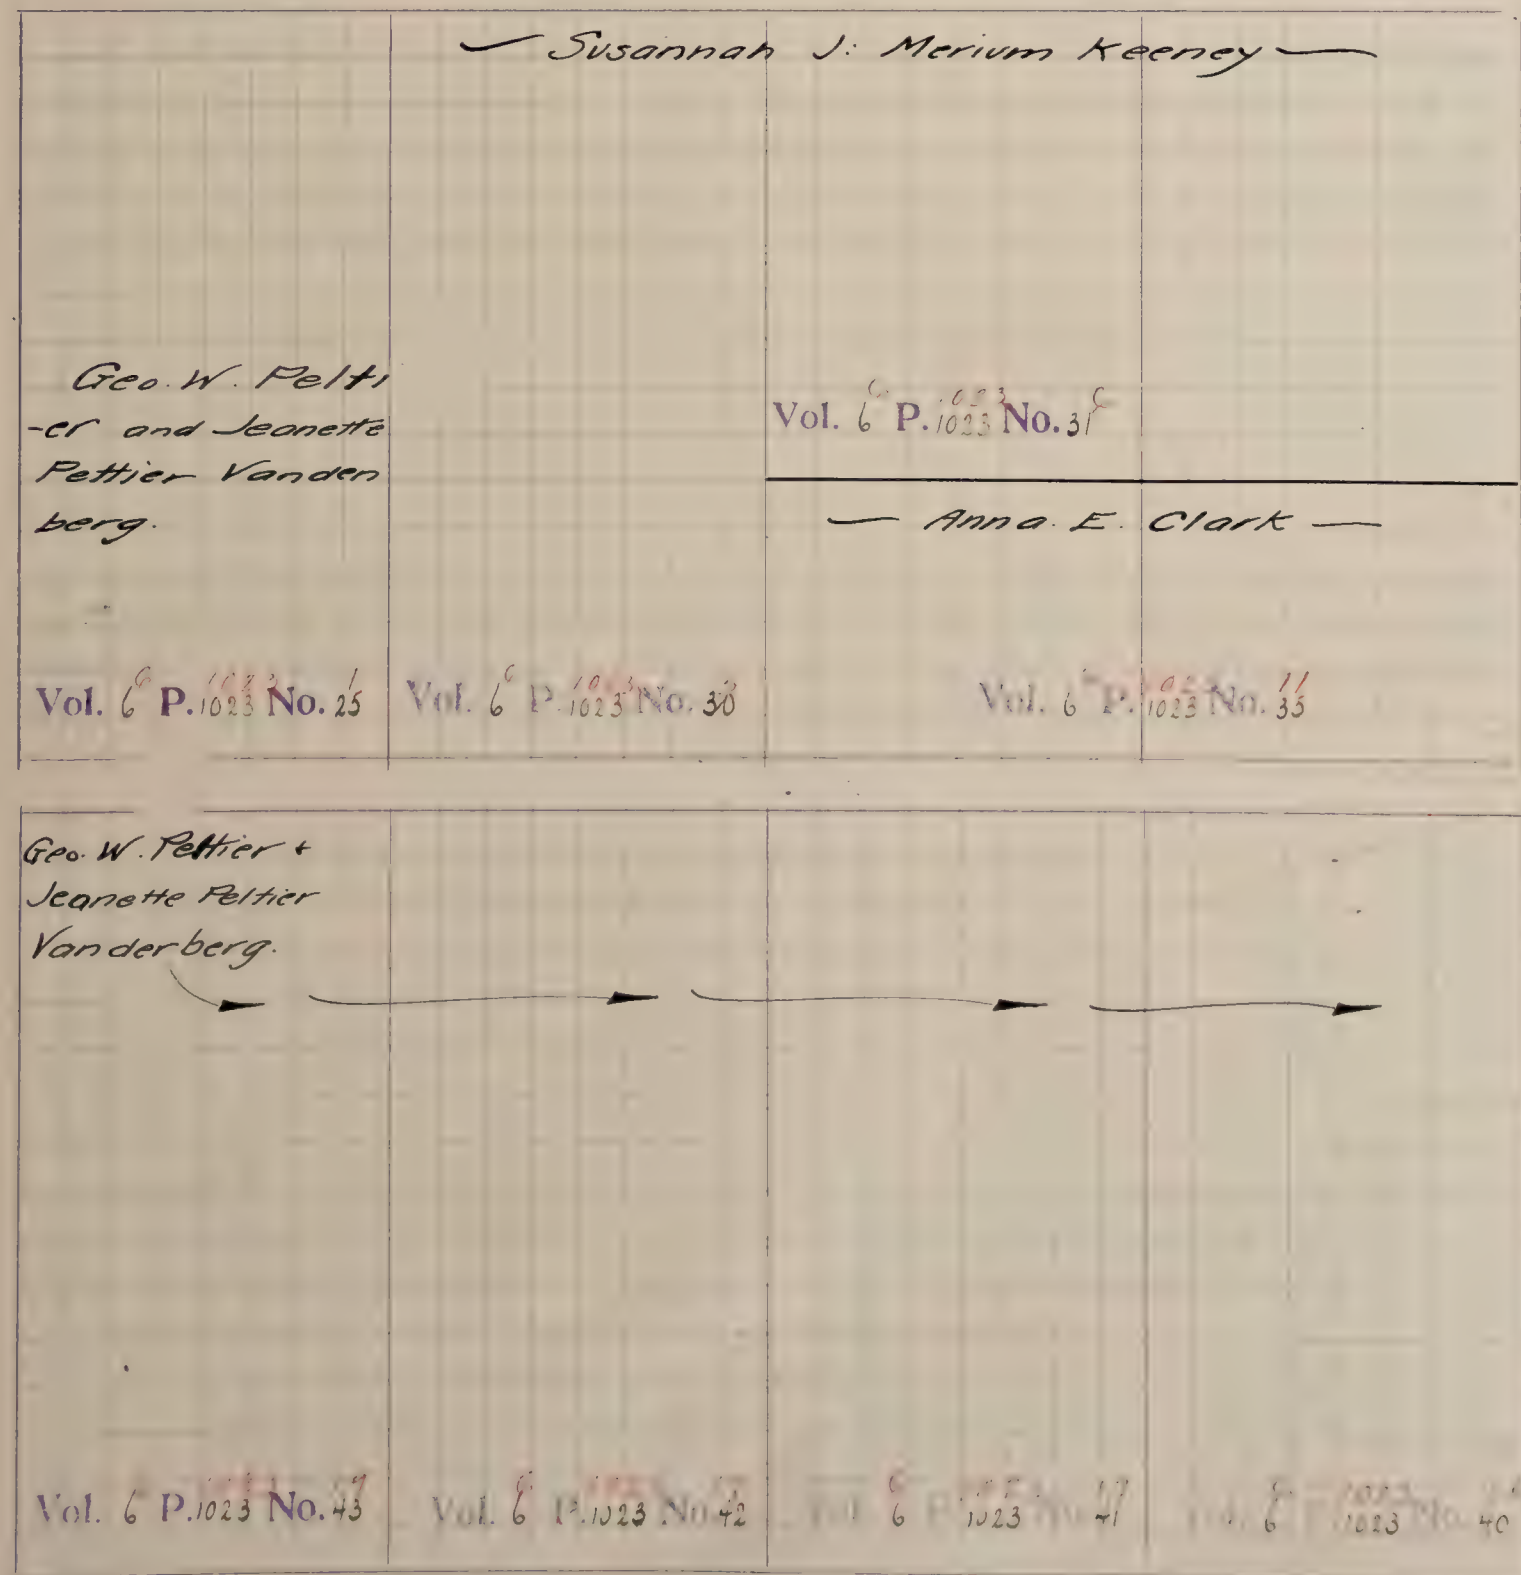 Susannah J. Merium Keeney
Geo. W. Pelti
-er and Jeanette
Peltier Vanden
berg.
Vol. 6 P. 1023 No. 31
Anna. E. Clark
Vol. 6 P. 1023 No. 25
Vol. 6 P. 1023 No. 30
Vol. 6 P. 1023 No. 33
Geo. W. Peltier +
Jeanette Peltier
Vanderberg.
Vol. 6 P. 1023 No. 43
Vol. 6 P. 1023 No. 42
Vol. 6 P. 1023 No. 41
Vol. 6 P. 1023 No. 40